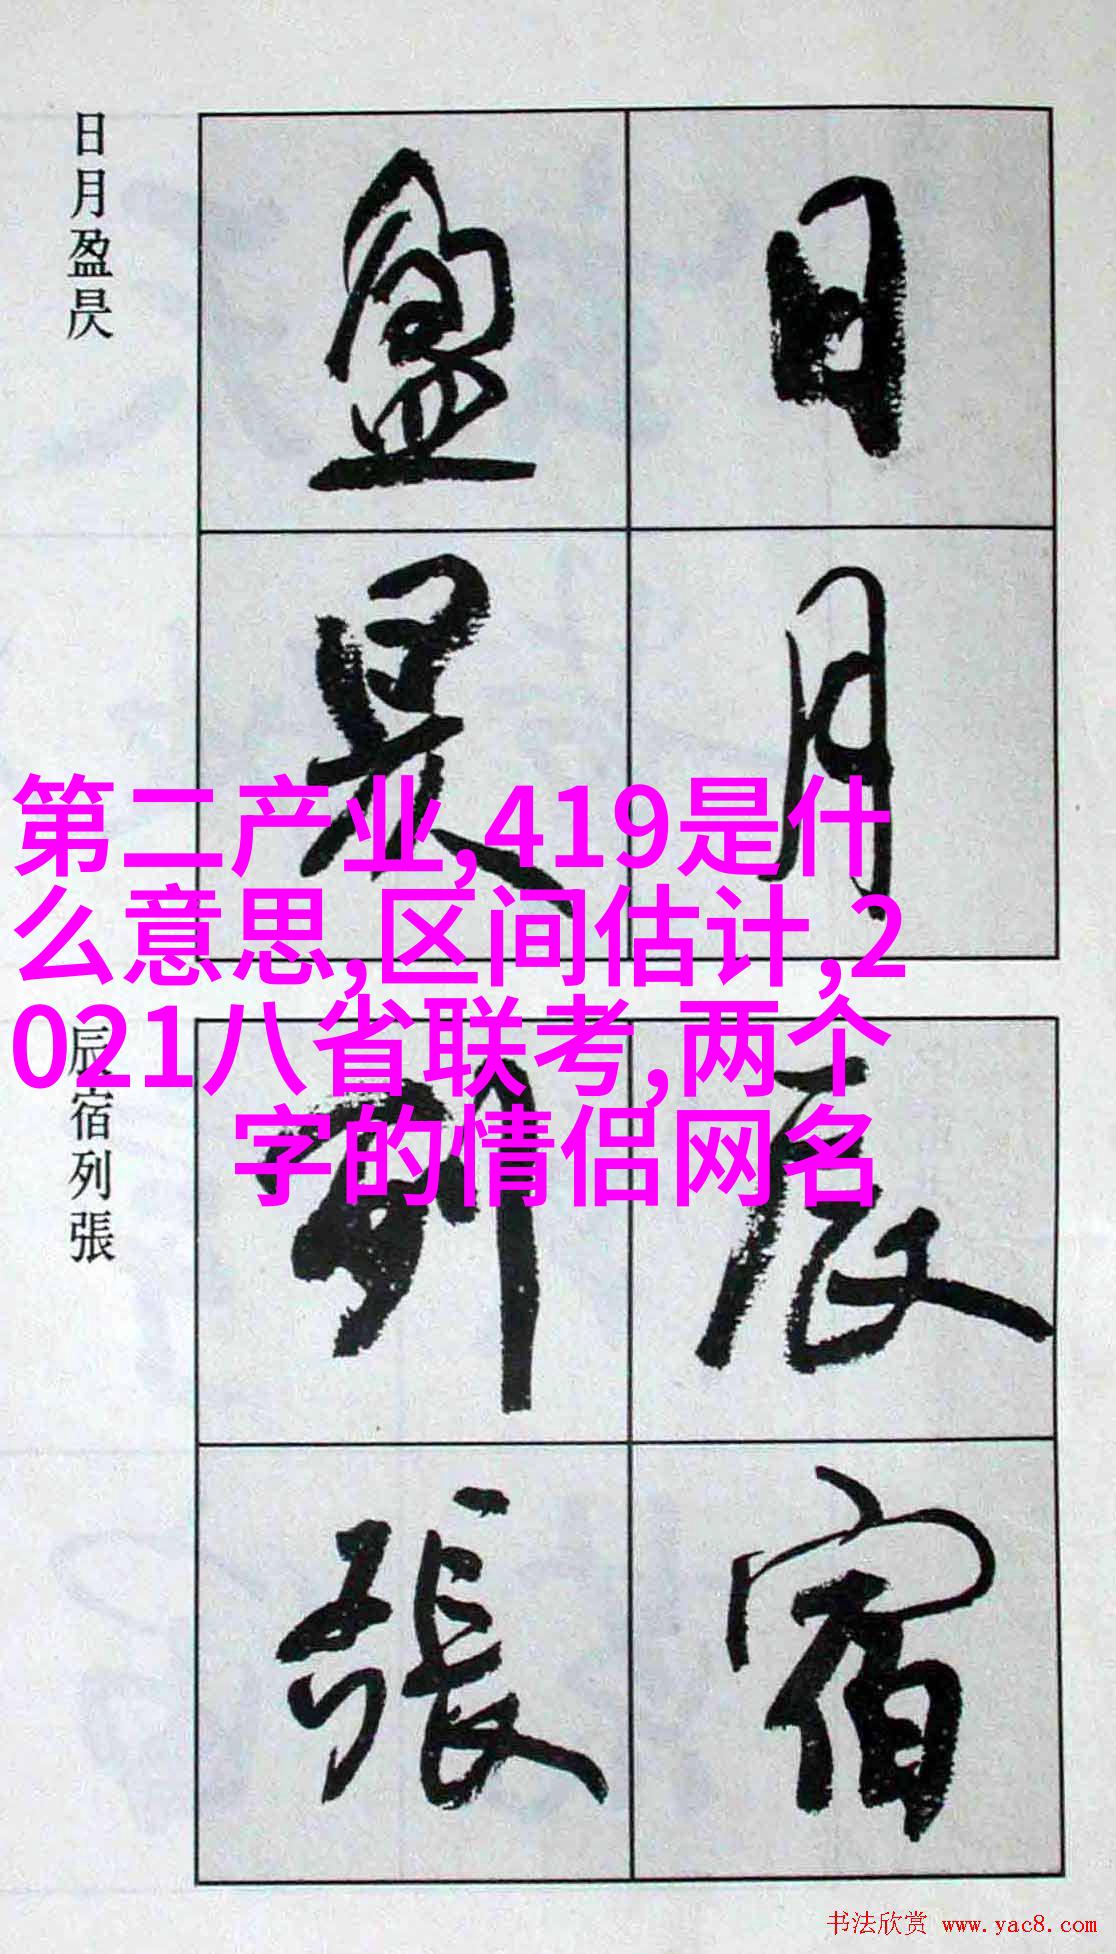 日月盈昃
日月
盈昃
第二产业,419是什
么意思,区间估计,2
021八省联考,两个
字的情侣网名
辰宿列張
辰宿
列張
书法欣赏 www.yac8.com